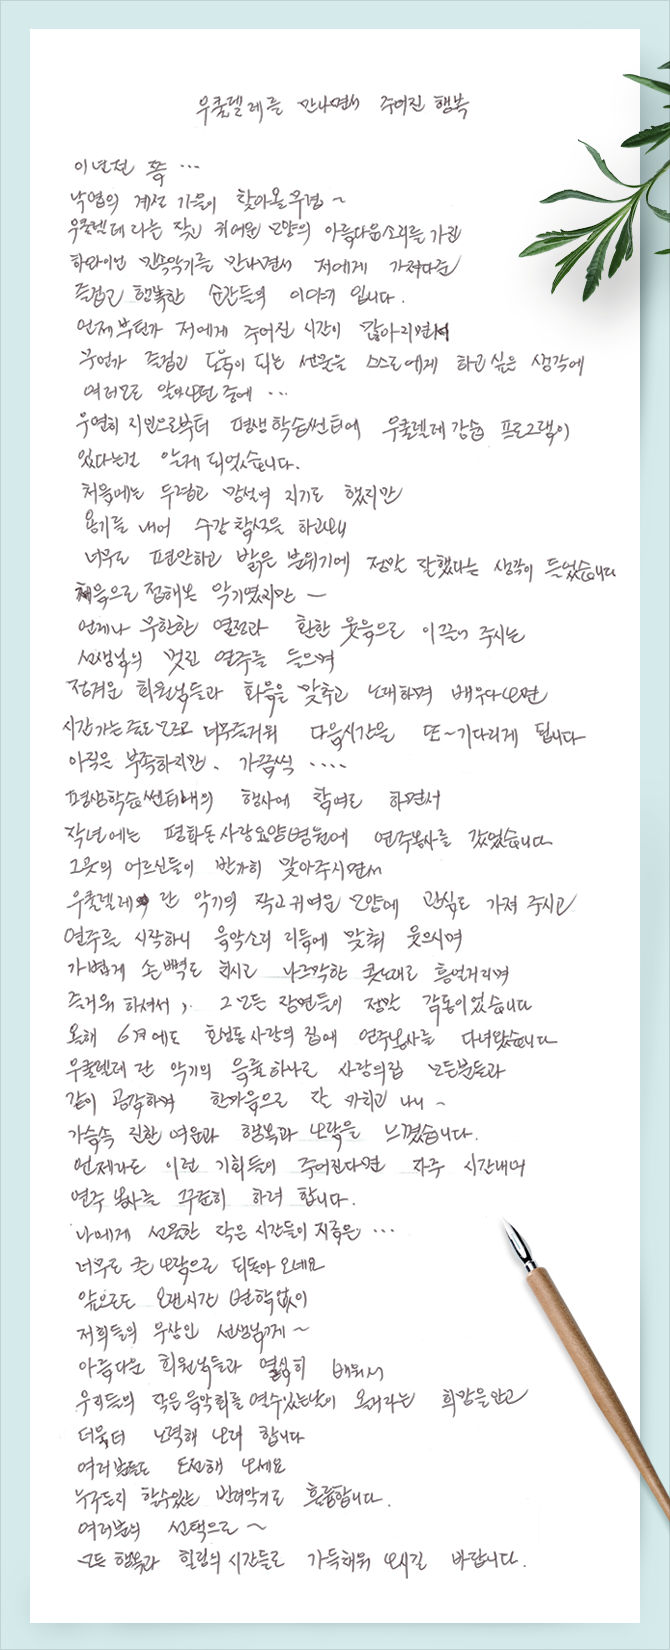 우쿨렐레를 만나면서 주어진 행복
이년전 쯤 ...
낙엽의 계절 가을이 찾아올무렵 ~
우쿨렐레라는 작고 귀여운 모양의 아름다운소리를 가진
하와이언 민속악기를 만나면서 저에게 가져다준
즐겁고 행복한 순간들의 이야기 입니다.
언제부턴가 저에게 주어진 시간이 많아지면서
무언가 즐겁고 도움이 되는 선물을 스스로에게 하고싶은 생각에
여러모로 알아보던중에 ...
우연히 지인으로부터 평생학습쎈터에 우쿨렐레강습 프로그램이
있다는걸 알게되었습니다.
처음에는 두렵고 망설여 지기도 했지만
용기를 내어 수강 참석을 하고보니
너무도 편안하고 밝은 분위기에 정말 잘했다는 생각이 들었습니다
처음으로 접해본 악기였지만 ~
언제나 무한한 열정과 환한 웃음으로 이끌어 주시는
선생님의 멋진 연주를 들으며
정겨운 회원님들과 화음을 맞추고 노래하며 배우다보면
시간가는줄도 모르고 너무즐거워 다음시간을 또~기다리게 됩니다
아직은 부족하지만. 가끔씩 ....
평생학습쎈터내의 행사에 참여도 하면서
작년에는 평화동사랑요양병원에 연주봉사를 갔었습니다
그곳의 어르신들이 반가히 맞아주시면서
우쿨렐레란 악기의 작고귀여운 모양에 관심도 가져 주시고
연주를 시작하니 음악소리 리듬에 맞춰 웃으시며
가볍게 손뼉도 치시고 나즈막한 콧노래로 흥얼거리며
즐거워 하셔서, 그모든 장면들이 정말 감동이었습니다
올해 6월에도 효성동사랑의 집에 연주봉사를 다녀왔습니다
우쿨렐레란 악기의 음률하나로 사랑의집 모든분들과
같이 공감하며 한마음으로 잘 마치고 나니 ~
가슴속 진한 여운과 행복과 보람을 느꼈습니다.
언제라도 이런 기회들이 주어진다면 자주 시간내어
연주 봉사를 꾸준히 하려 합니다.
나에게 선물한 작은 시간들이 지금은 ...
너무도 큰 보람으로 되돌아 오네요
앞으로도 오랜시간 변함없이
저희들의 우상인 선생님께 ~
아름다운 회원님들과 열심히 배워서
우리들의 작은음악회를 열수있는날이 오리라는 희망을안고
더욱더 노력해 보려 합니다
여러분들도 도전해 보세요
누구든지 할수있는 반려악기로 훌륭합니다.
여러분의 선택으로 ~
모든 행복과 힐링의 시간들로 가득채워 보시길 바랍니다.